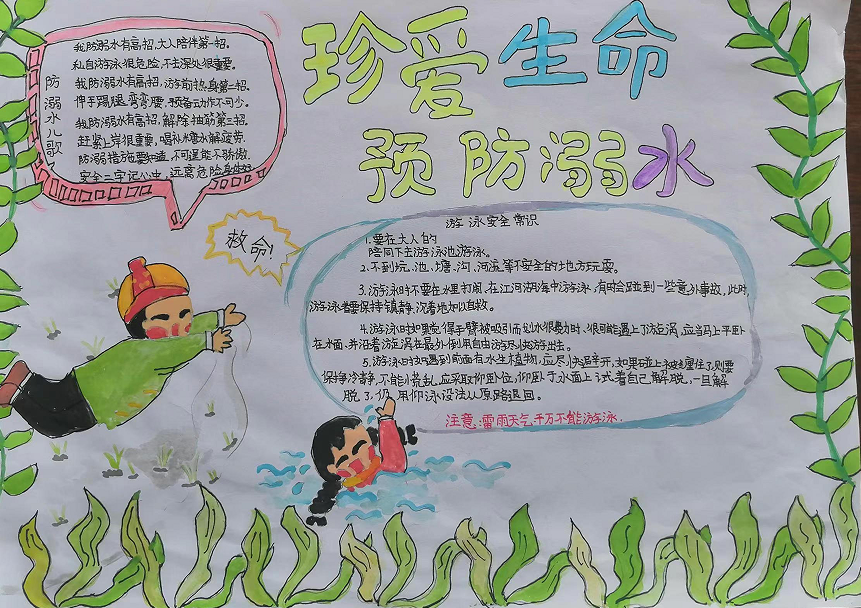 珍爱生命
预防溺水
防溺水儿歌
我防溺水有高招,大人陪伴第一招。
私自游泳很危险,不去深处很重要。
我防溺水有高招,游前热身第二招。
伸手踢腿弯弯腰,预备动作不可少。
我防溺水有高招,解除抽筋第三招。
赶紧上岸很重要,喝补糖水解疲劳.
防溺措施要知道,不可逞能不骄傲.
安全二字记心中,远离危险身体好
救命!
游泳安全常识
1.要在大人的
陪同下去游泳池游泳。
2.不到坑、池、塘、沟、河流等不安全的地方玩耍。
3.游泳时不要在水里打闹.在江河湖海中游泳,有时会碰到一些意外事故,此时,
游泳者要保持镇静,沉着地加以自救。
4.游泳时如果觉得手臂被吸引而划水很费力时、很可能遇上了游涡,应当马上平卧
在水面、并沿着游涡在最外侧用自由游尽快游出去。
5.游泳时如遇到前面有水生植物,应尽快避开,如果碰上被缠住了,则要
保持冷静,不能慌乱,应采取仰卧位,仰卧于水面上试着自己解脱,一旦解
脱了,仍用仰泳设法从原路退回。
注意:雷雨天气千万不能游泳.